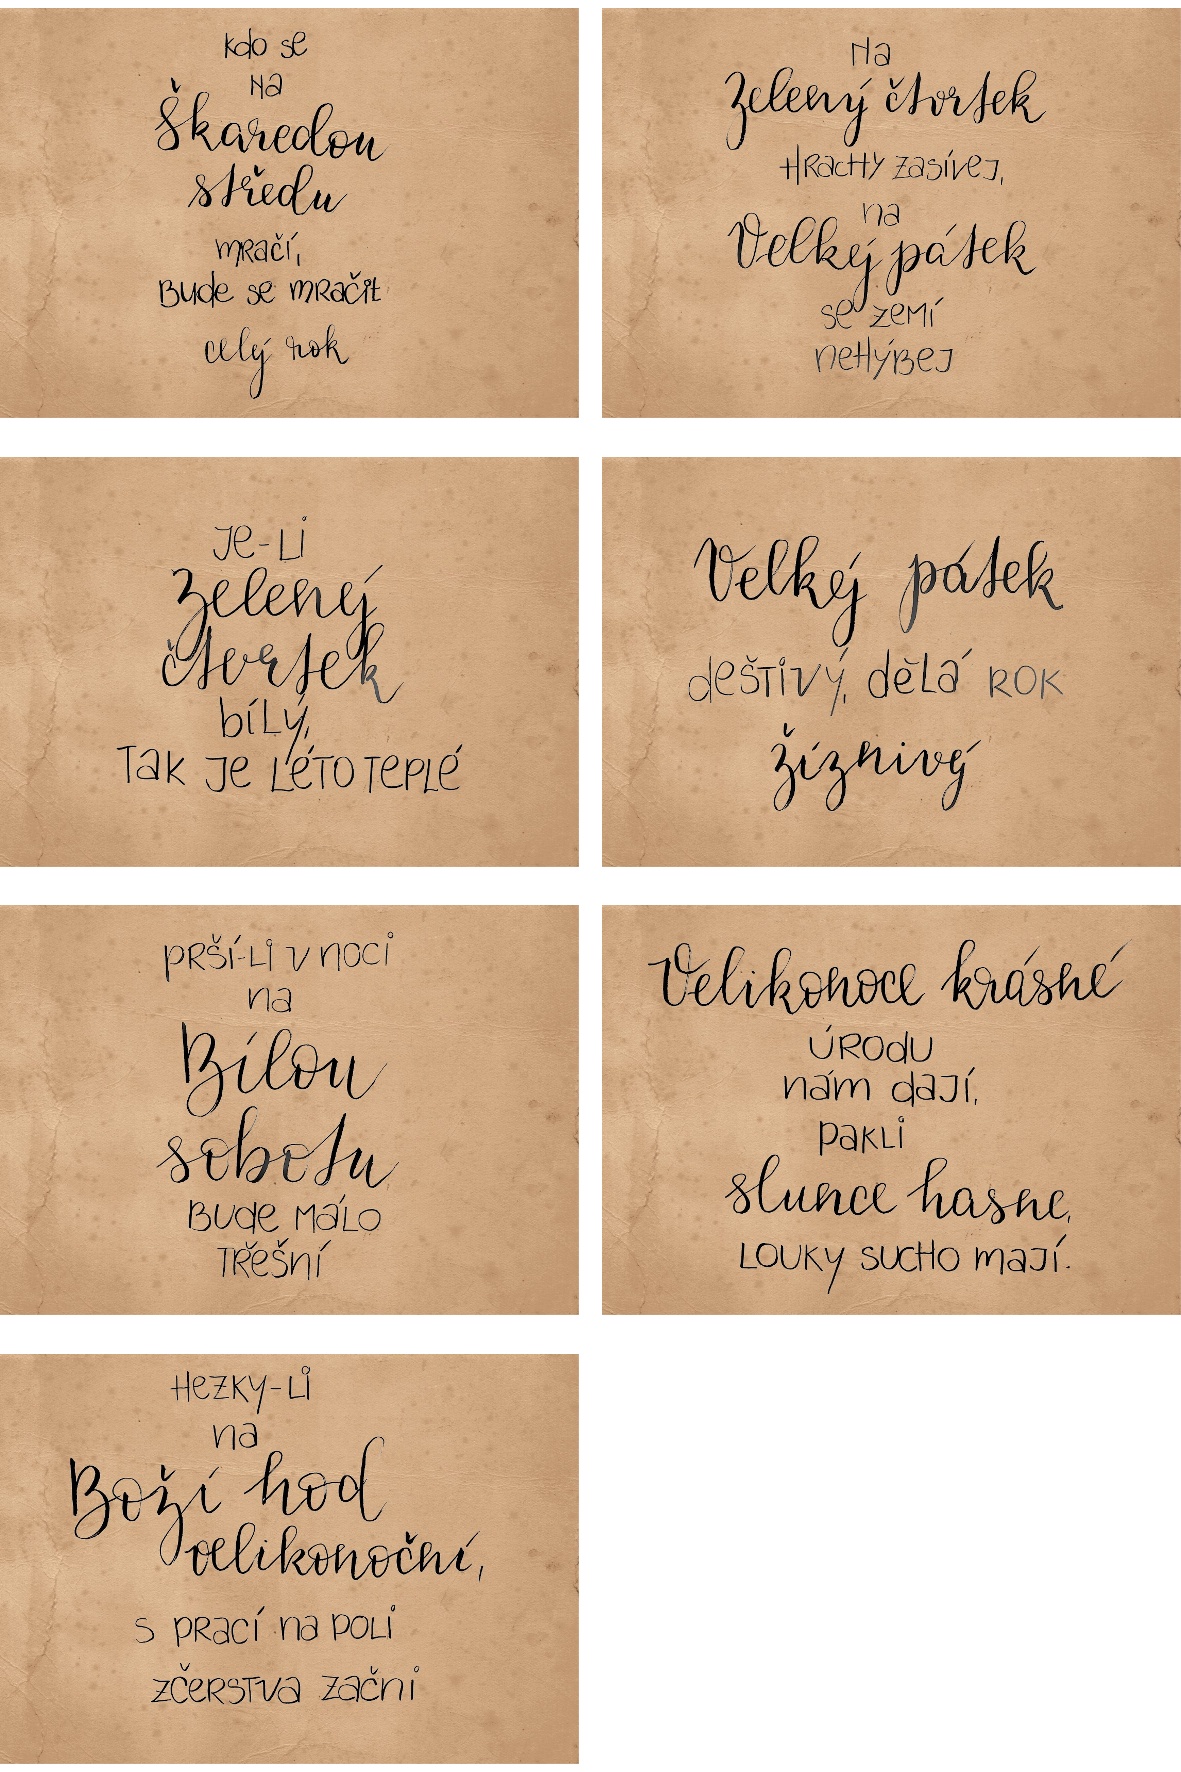 kdo se
na
Škaredou
středu
mračí,
Bude se mračit
celý rok
Na
Zelený čtvrtek
Hrachy zasívej,
na
Velký pátek
se zemí
nehýbej
Je-li
Zelený
čtvrtek
bílý,
Tak je léto teplé
Velký pátek
deštivý, dělá rok
žíznivý
prší-li v noci
na
Bílou
sobotu
Bude málo
třešní
Velikonoce krásné
úrodu
nám dají,
pakli
slunce hasne,
louky sucho mají.
Hezky-li
na
Boží hod
velikonoční,
s prací na poli
zčerstva začni